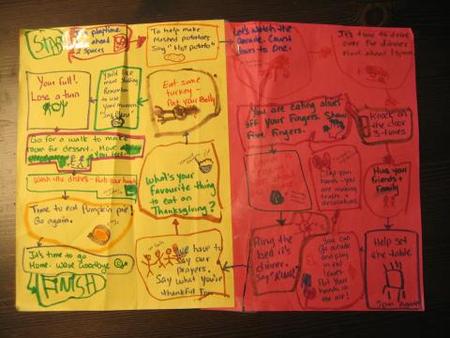 START
playtime
ahead
spaces
To help make
Mashed potatoes
Say "Hot potato"
Let's Watch the
Parade. Count
down to One.
It's time to drive
over for dinner
Move ahead 1 space
Your full!
Lose a turn
Eat some
turkey
Pat your Belly
You are eating olives
off your fingers. Show
Five fingers.
Knock on
the door
3 times
Go for a walk to make
room for dessert. Move
Wash the dishes - Rub your hands
What's your
favourite thing
to eat on
Thanksgiving?
Hug your
friends +
Family
Time to eat Pumpkin pie!
Go again.
We have to
say our
prayers.
Say what you're
thankful for
Ring the
bell it's
dinner.
Say "RING"
You can
go outside
and play
in the
leaves
Put your
hands in
the air!
Help set
the table.
It's time to go
Home. Wave Goodbye
FINISH